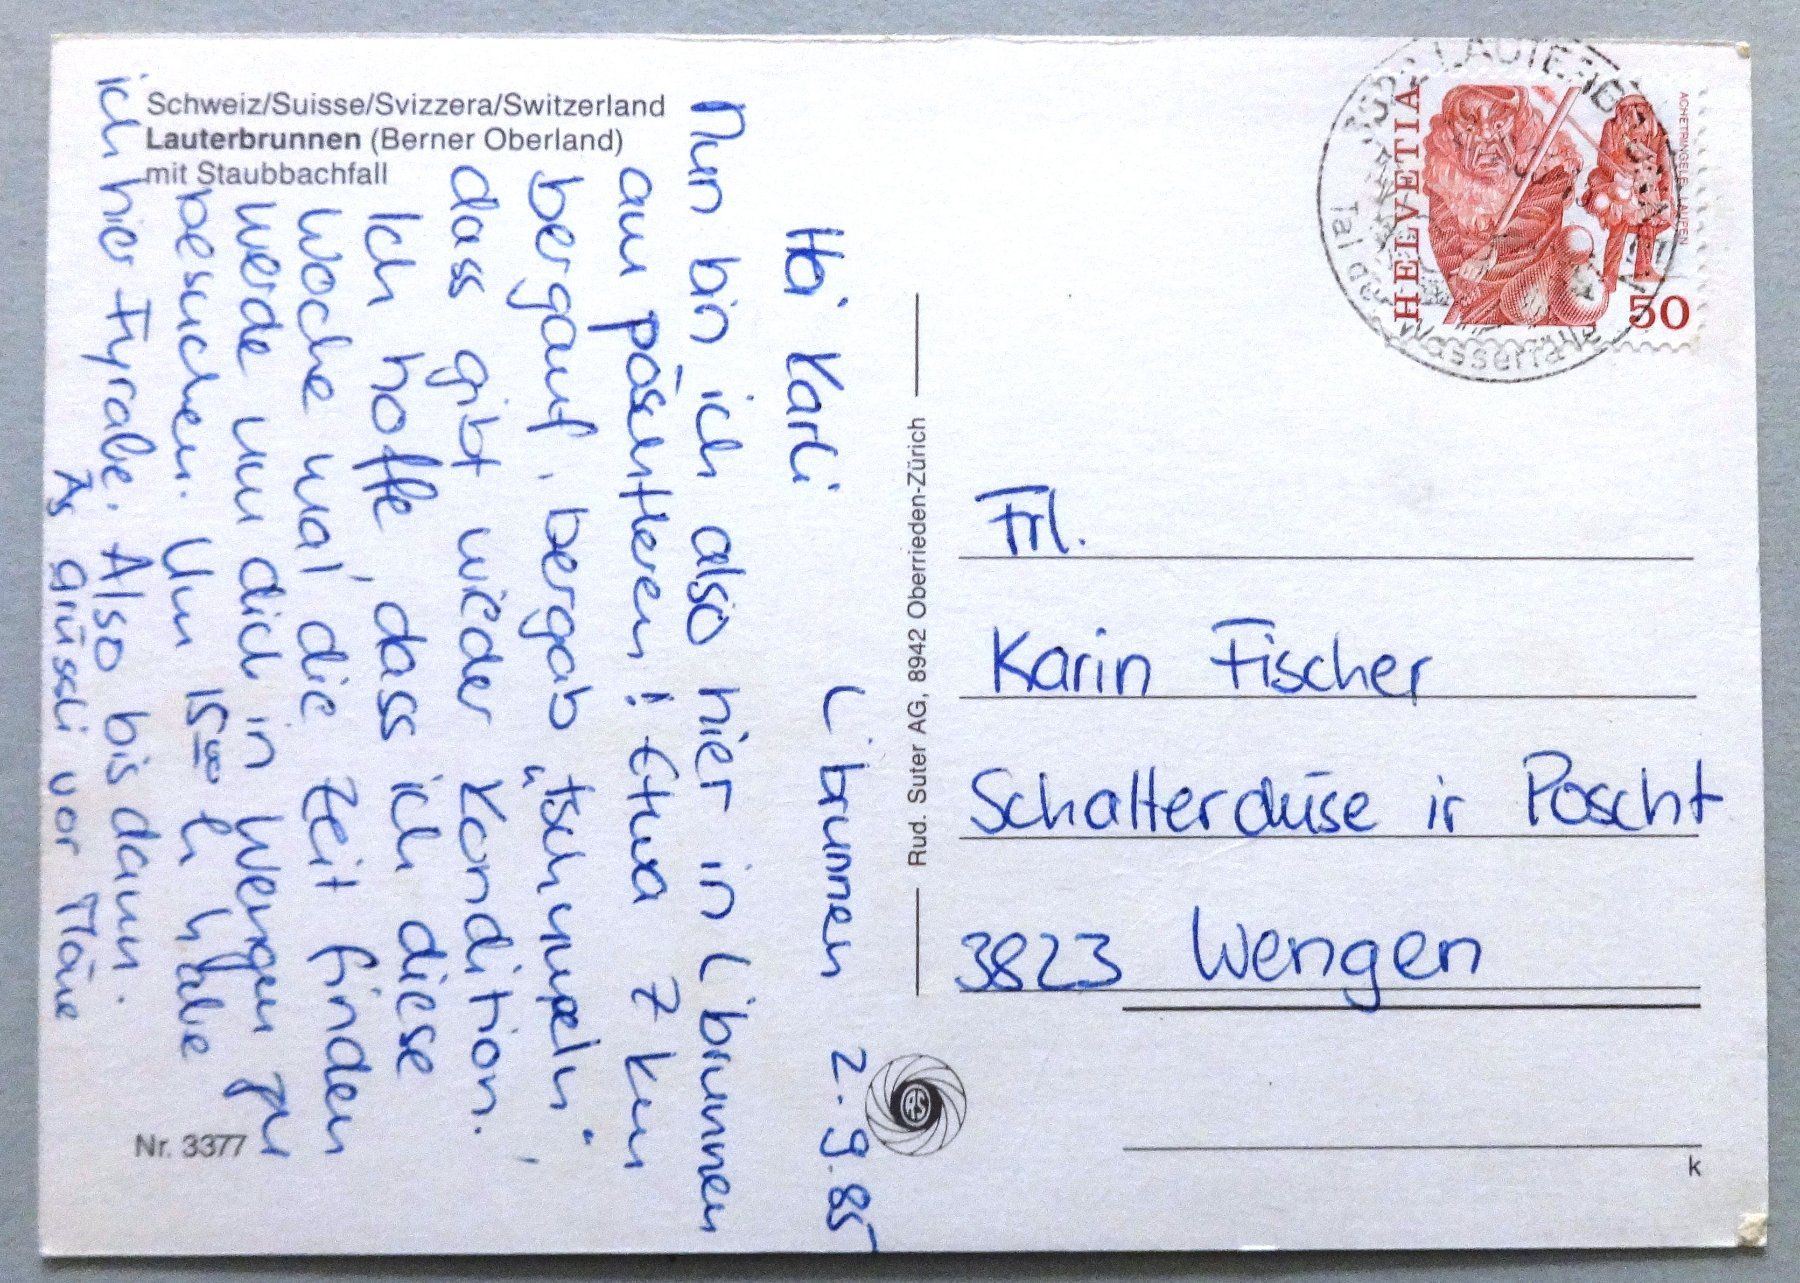 Schweiz/Suisse/Svizzera/Switzerland
Lauterbrunnen (Berner Oberland)
mit Staubbachfall
L'brunnen 2.9.85
Hoi Karli
Nun bin ich also hier in L'brunnen
am pöschtelen! Etwa 7 km
bergauf, bergab „tschumpeln",
dass gibt wieder Kondition.
Ich hoffe, dass ich diese
Woche mal die Zeit finden
werde um dich in Wengen zu
besuchen. Um 15.00 h habe
ich hier Fyrabe. Also bis dann.
Äs grüssli vor Mäne
Nr. 3377
Rud. Suter AG, 8942 Oberrieden-Zürich
HELVETIA
ACHETRINGELE LAUPEN
50
LAUTERBRUNNEN
Tal der Wasserfälle
Frl.
Karin Fischer
Schalterdüse ir Poscht
3823 Wengen
k